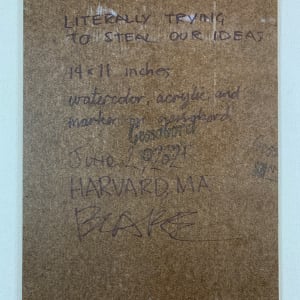 LITERALLY TRYING
TO STEAL OUR IDEAS
14 x 11 inches
watercolor, acrylic and
marker on
Gessobord
June
HARVARD, MA
BLAKE